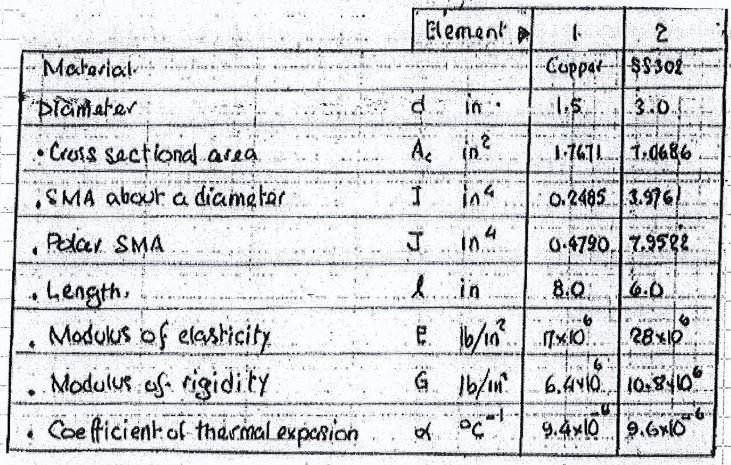 Element ▶ 1. 2
Material Copper SS302
Diameter d in 1.5 3.0
• Cross sectional area Ac in² 1.7671 7.0686
. SMA about a diameter I in⁴ 0.2485 3.9761
. Polar SMA J in⁴ 0.4790 7.9522
. Length. l in 8.0 6.0
. Modulus of elasticity E lb/in² 17x10⁶ 28x10⁶
. Modulus of rigidity G lb/in² 6.4x10⁶ 10.8x10⁶
. Coefficient of thermal expasion α °C⁻¹ 9.4x10⁻⁶ 9.6x10⁻⁶